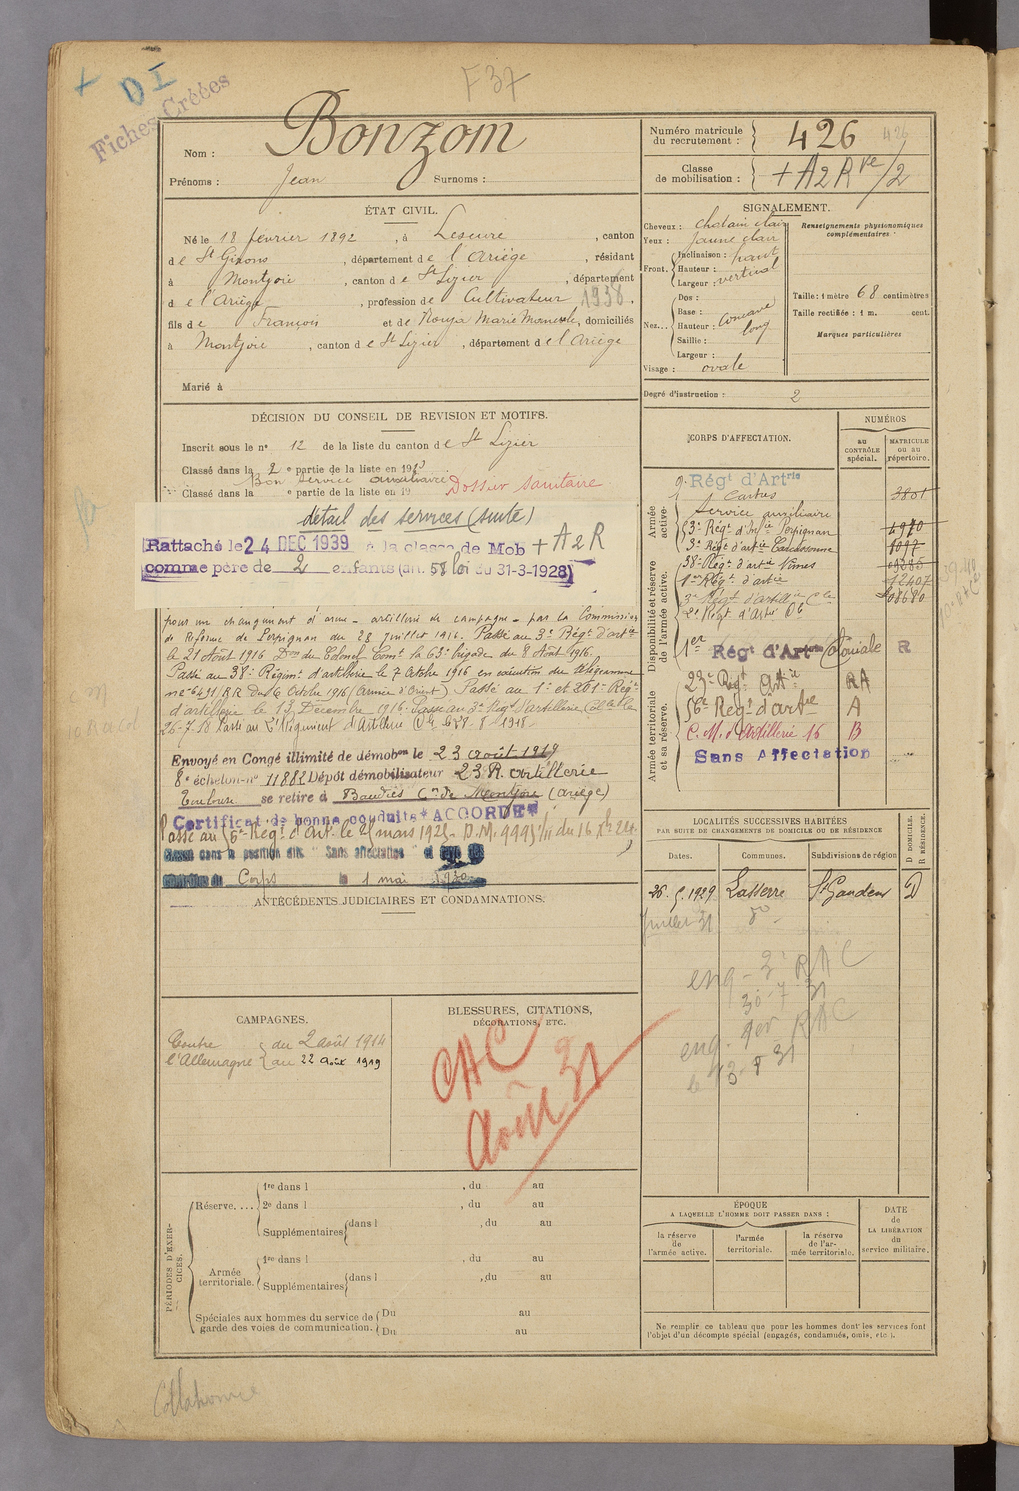 F 37
DI
Fiches Créées
Nom : Bonzom
Prénoms : Jean Surnoms :
Numéro matricule du recrutement : 426 426
Classe de mobilisation : + A2 R ve/2
ÉTAT CIVIL.
Né le 18 février 1892, à Lescure, canton
de St Girons, département de l'Ariège, résidant
à Montjoie, canton de St Lizier, département
de l'Ariège, profession de Cultivateur 1938.
fils de François et de Rouja Marie, domiciliés
à Montjoie, canton de St Lizier, département de l'Ariège
Marié à
SIGNALEMENT.
Cheveux : chatain clair
Yeux : jaune clair
Front. Inclinaison : haut
Hauteur : vertical
Largeur :
Nez... Dos :
Base :
Hauteur : concave
Saillie : long
Largeur :
Visage : ovale
Renseignements physionomiques complémentaires :
Taille : 1 mètre 68 centimètres
Taille rectifiée : 1 m. cent.
Marques particulières
Degré d'instruction : 2
DÉCISION DU CONSEIL DE REVISION ET MOTIFS.
Inscrit sous le n° 12 de la liste du canton de St Lizier
Classé dans la 2e partie de la liste en 1913
Bon service auxiliaire
Classé dans la e partie de la liste en 19
Dossier sanitaire
détail des services (suite)
Rattaché le 24 DEC 1939 à la classe de Mob + A2R
comme père de 2 enfants (art. 58 loi du 31-3-1928)
pour un changement d'arme - artillerie de campagne - par la Commission
de Réforme de Perpignan du 28 juillet 1916. Passé au 3e Régt d'artie
le 21 Août 1916 Don du Colonel Comt la 63e brigade du 8 Août 1916.
Passé au 38e Régimt d'artillerie le 7 Octobre 1916 en exécution du télégramme
(Armée d'Orient) Passé au 1er et 201e Régt
d'artillerie le 13 Décembre 1916. Passé au 3e Régt d'artillerie
26-7-18 Passé au 2e Régiment d'Artillerie
Envoyé en Congé illimité de démobon le 23 août 1919
8e échelon n° 11882 Dépôt démobilisateur 23 R. artillerie
Toulouse se retire à Baudies Cne de Montjoie (Ariège)
Certificat de bonne conduite "ACCORDÉ"
Passé au 56e Régt d'Art. le 25 mars 1925
Classé dans la position dite "Sans affectation" et
Corps le 1 mai 1930
ANTÉCÉDENTS JUDICIAIRES ET CONDAMNATIONS.
CORPS D'AFFECTATION.
NUMÉROS
au CONTRÔLE spécial.
MATRICULE ou au répertoire.
Armée active.
9e Régt d'Artrie
Castres 3801
Service auxiliaire
Disponibilité et réserve de l'armée active.
3e Régt d'Infie Perpignan 4970
3e Régt d'artie Carcassonne 8097
38e Régt d'artie Nimes
1er Régt d'artie 12407
3e Régt d'artillie Cle 08680
2e Régt d'Artie
1er Régt d'Artrie Coloniale R
Armée territoriale et sa réserve.
23e Régt Artie RA
56e Régt d'artie A
C. M. d'Artillerie 16 B
Sans Affectation
LOCALITÉS SUCCESSIVES HABITÉES
PAR SUITE DE CHANGEMENTS DE DOMICILE OU DE RÉSIDENCE
Dates. Communes. Subdivisions de région
D DOMICILE.
R RÉSIDENCE.
26. 5. 1929 Lasserre St Gaudens D
Juillet 31 do
eng - 3e RAC
30-7-31
eng. 1er RAC
le 13-8 31
CAMPAGNES.
Contre l'Allemagne du 2 août 1914
au 22 Août 1919
BLESSURES, CITATIONS,
DÉCORATIONS, ETC.
CAC
Août 31
PÉRIODES D'EXERCICES.
Réserve. . . . 1re dans l , du au
2e dans l , du au
Supplémentaires dans l , du au
Armée territoriale. 1re dans l , du au
Supplémentaires dans l , du au
Spéciales aux hommes du service de garde des voies de communication. Du au
Du au
ÉPOQUE
A LAQUELLE L'HOMME DOIT PASSER DANS :
la réserve de l'armée active.
l'armée territoriale.
la réserve de l'armée territoriale.
DATE de LA LIBÉRATION du service militaire.
Ne remplir ce tableau que pour les hommes dont les services font
l'objet d'un décompte spécial (engagés, condamnés, omis, etc.).